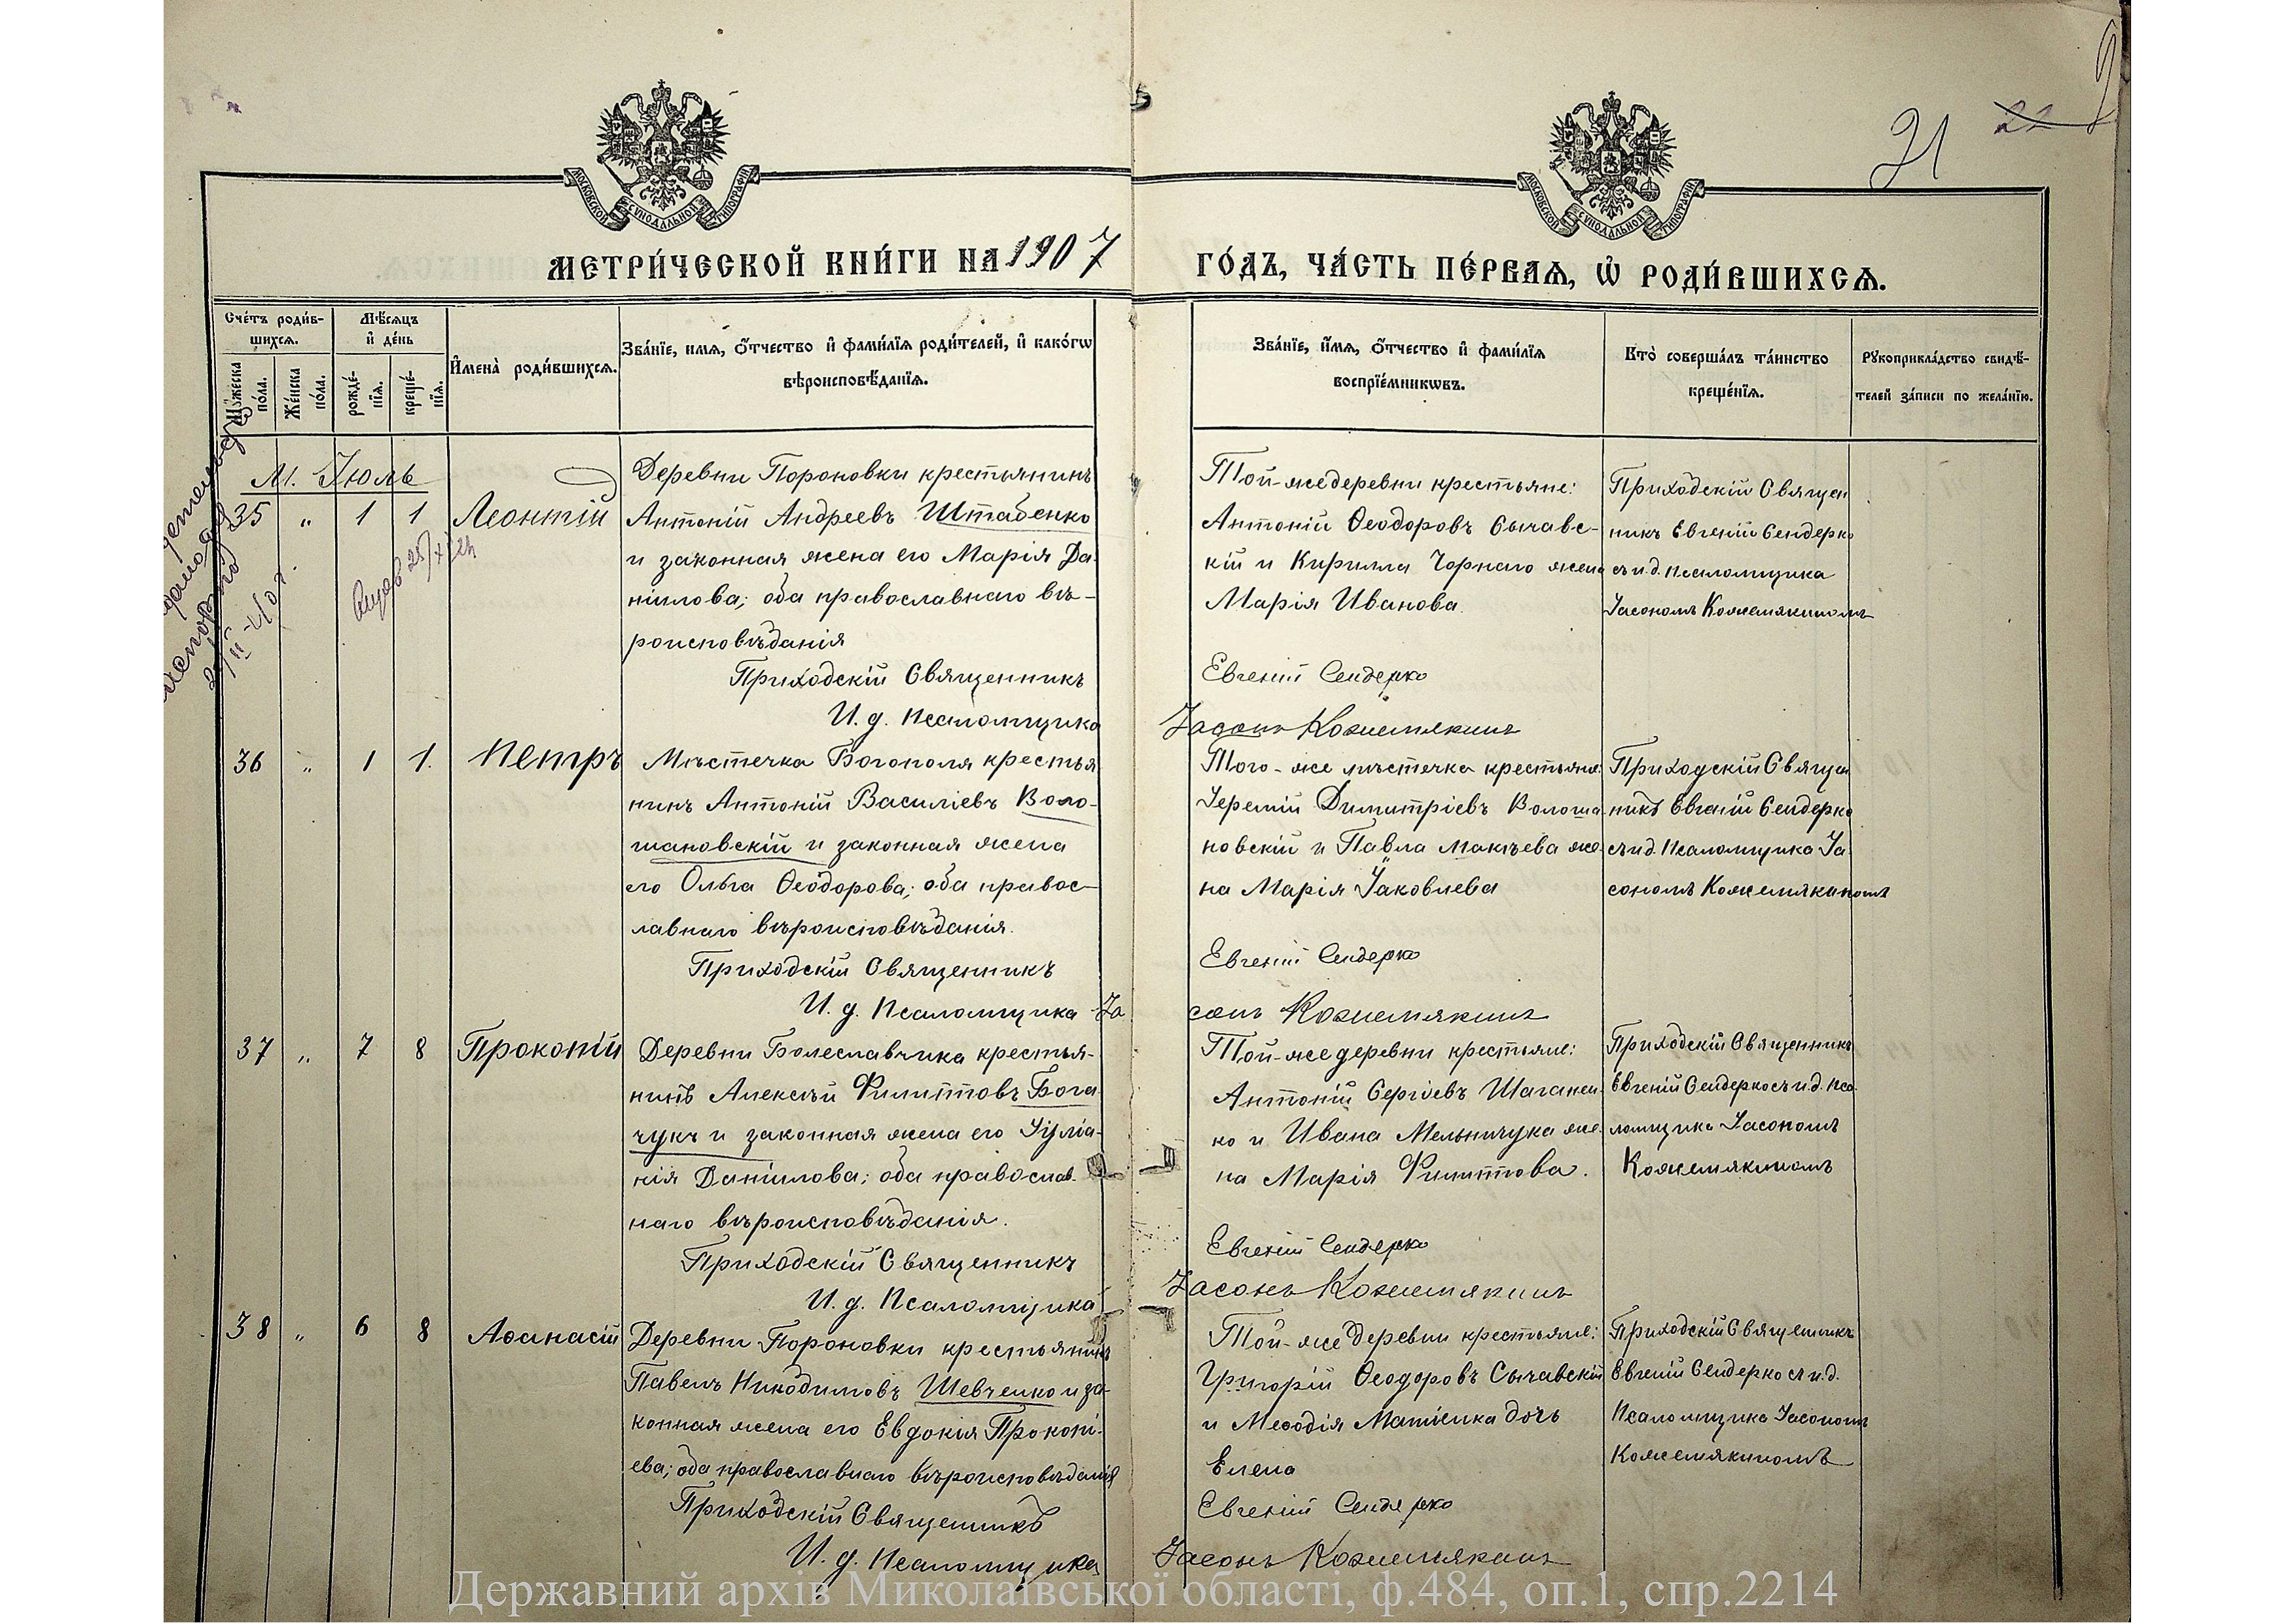 21
22
МОСКОВСКОЙ СѴНОДАЛЬНОЙ ТИПОГРАФІИ
МОСКОВСКОЙ СѴНОДАЛЬНОЙ ТИПОГРАФІИ
МЕТРИ́ЧЕСКОЙ КНИ́ГИ НА 1907
ГО́ДЪ, ЧА́СТЬ ПЕ́РВАѦ, Ѡ҆ РОДИ́ВШИХСѦ.
Сче́тъ роди́в-
шихсѧ.
Мꙋ́жеска по́ла.
Же́нска по́ла.
Мѣ́сѧцъ
и҆ де́нь
рожде́-
нїѧ.
креще́-
нїѧ.
И҆мена̀ роди́вшихсѧ.
Зва́нїе, и́мѧ, ѻ҆́тчество и҆ фами́лїѧ роди́телей, и҆ како́гѡ
вѣроисповѣ́данїѧ.
Зва́нїе, и́мѧ, ѻ҆́тчество и҆ фами́лїѧ
воспрїе́мникѡвъ.
Кто̀ соверша́лъ та́инство
креще́нїѧ.
Рꙋкоприкла́дство свидѣ́-
телей за́писи по жела́нїю.
М. Іюль
35 " 1 1 Леонтій
Деревни Пороновки крестьянинъ
Антоній Андреевъ Штабенко
и законная жена его Марія Да-
ніилова; оба православнаго вѣ-
роисповѣданія
Приходскій Священникъ
И. д. Псаломщика
Той-же деревни крестьяне:
Антоній Ѳеодоровъ Сычавс-
кій и Кирилла Чорнаго жена
Марія Иванова.
Евгеній Сендерко
Іасонъ Кожемякинъ
Приходскій Священ
никъ Евгеній Сендерко
съ и.д. псаломщика
Іасономъ Кожемякиномъ
36 " 1 1. Петръ
Мѣстечка Богополя крестья
нинъ Антоній Василіевъ Воло-
шановскій и законная жена
его Ольга Ѳеодорова; оба правос-
лавнаго вѣроисповѣданія.
Приходскій Священникъ
И. д. Псаломщика Іа
Того-же мѣстечка крестьяне:
Іеремій Димитріевъ Волоша
новскій и Павла Макѣева же-
на Марія Іаковлева
Евгеній Сендерко
сонъ Кожемякинъ
Приходскій Священ
никъ Евгеній Сендерко
съ и.д. Псаломщика Іа
сономъ Кожемякиномъ
37 " 7 8 Прокопій
Деревни Болеславчика крестья-
нинъ Алексѣй Филипповъ Бога
чукъ и законная жена его Іуліа-
нія Даніилова; оба православ-
наго вѣроисповѣданія.
Приходскій Священникъ
И. д. Псаломщика
Той-же деревни крестьяне:
Антоній Сергіевъ Шаганен-
ко и Ивана Мельничука же-
на Марія Филиппова.
Евгеній Сендерко
Іасонъ Кожемякинъ
Приходскій Священникъ
Евгеній Сендерко съ и.д. Пса-
ломщика Іасономъ
Кожемякиномъ
38 " 6 8 Аѳанасій
Деревни Пороновки крестьянинъ
Павелъ Никодимовъ Шевченко и за-
конная жена его Евдокія Прокопі-
ева; оба православнаго вѣроисповѣданія
Приходскій Священникъ
И. д. Псаломщика
Той-же деревни крестьяне:
Григорій Ѳеодоровъ Сычавскій
и Меѳодія Матіенка дочь
Елена
Евгеній Сендерко
Іасонъ Кожемякинъ
Приходскій Священникъ
Евгеній Сендерко съ и.д.
Псаломщика Іасономъ
Кожемякиномъ
Державний архів Миколаївської області, ф.484, оп.1, спр.2214